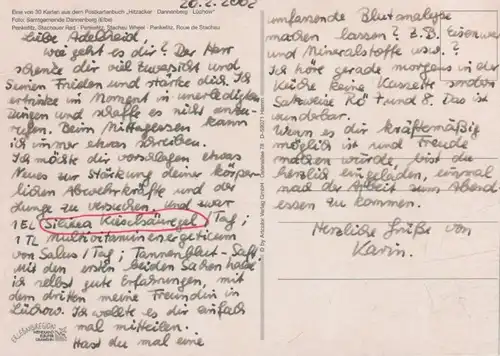 20.2.2002
Eine von 30 Karten aus dem Postkartenbuch „Hitzacker · Dannenberg · Lüchow"
Foto: Samtgemeinde Dannenberg (Elbe)
Liebe Adelheid,
wie geht es dir? Der Herr
schenke dir viel Zuversicht und
Seinen Frieden und stärke dich. Ich
ertrinke im Moment in unerledigten
Dingen und schaffe es nicht anzu-
rufen. Beim Mittagessen kann
ich immer etwas schreiben.
Ich möchte dir vorschlagen etwas
Neues zur Stärkung deiner körper-
lichen Abwehrkräfte und der
Lunge zu versuchen, und zwar
1 EL Silicea Kieselsäuregel / Tag;
1 TL Multivitamin energeticum
von Salus / Tag; Tannenblut-Saft
Mit den ersten beiden Sachen habe
ich selbst gute Erfahrungen, mit
dem dritten meine Freundin in
Lüchow. Ich wollte es dir einfach
mal mitteilen.
Hast du mal eine
ELBTALAUE
WENDLAND
© by Artcolor Verlag GmbH D-59071 Hamm
umfassende Blutanalyse
machen lassen? Z.B. Eisenwer
und Mineralstoffe usw.?
Ich höre gerade morgens in der
Küche deine Kassette
Kö + und 8. Das ist
wunderbar.
Wenn es dir kräftemäßig
möglich ist und Freude
machen würde, bist du
herzlich eingeladen, einmal
nach der Arbeit zum Abend
essen zu kommen.
Herzliche Grüße von
Karin.